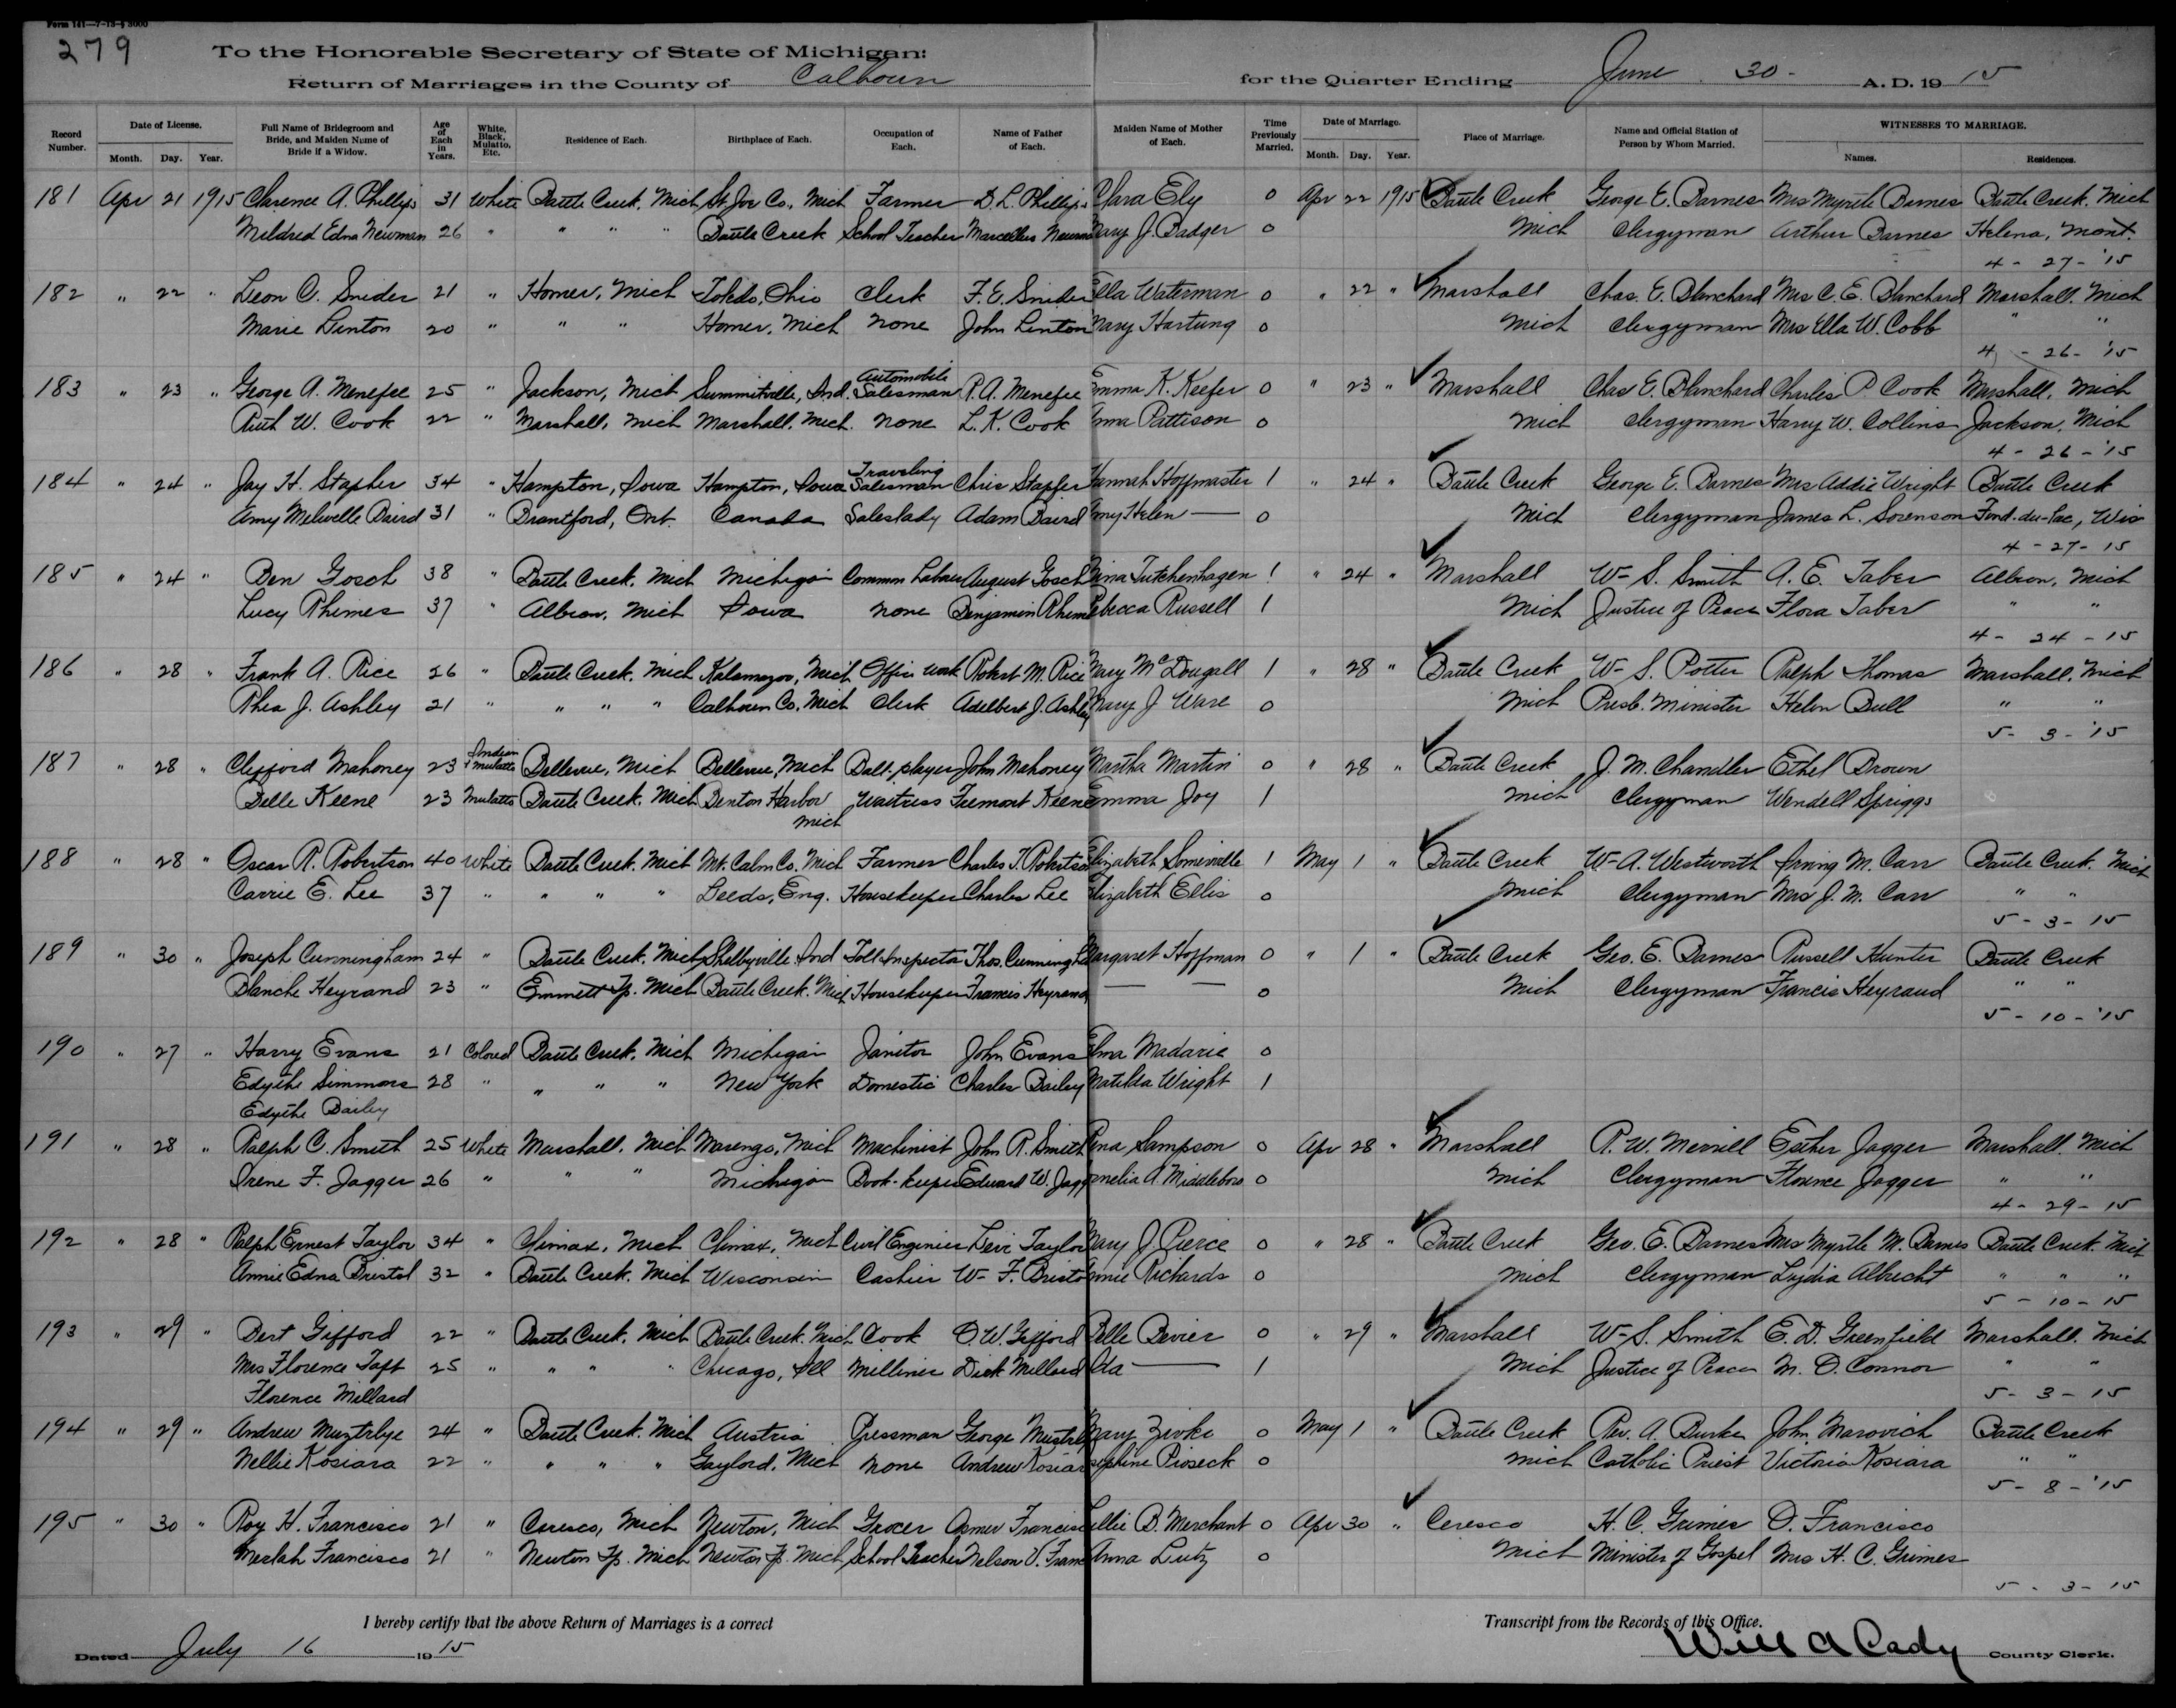 279
To the Honorable Secretary of State of Michigan:
Return of Marriages in the County of Calhoun for the Quarter Ending June 30 - A. D. 19 15
Record Number. Date of License. Month. Day. Year. Full Name of Bridegroom and Bride, and Maiden Name of Bride if a Widow. Age of Each in Years. White, Black, Mulatto, Etc. Residence of Each. Birthplace of Each. Occupation of Each. Name of Father of Each. Maiden Name of Mother of Each. Time Previously Married. Date of Marriage. Month. Day. Year. Place of Marriage. Name and Official Station of Person by Whom Married. WITNESSES TO MARRIAGE. Names. Residences.
181 Apr 21 1915 Clarence A. Phillips 31 White Battle Creek, Mich St. Joe Co., Mich Farmer D. L. Phillips Clara Ely 0 Apr 22 1915 Battle Creek George E. Barnes Mrs Myrtle Barnes Battle Creek, Mich
Mildred Edna Newman 26 " " " " Battle Creek School Teacher Marcellus Mary J. Badger 0 Mich Clergyman Arthur Barnes Helena, Mont.
4 - 27 - '15
182 " 22 " Leon C. Snider 21 " Homer, Mich Toledo, Ohio Clerk F. E. Snider Ella Waterman 0 " 22 " Marshall Chas. E. Blanchard Mrs C. E. Blanchard Marshall, Mich
Marie Linton 20 " " " Homer, Mich none John Linton Mary Hartung 0 Mich Clergyman Mrs Ella W. Cobb " "
4 - 26 - '15
183 " 23 " George A. Menefee 25 " Jackson, Mich Summitville, Ind. Automobile Salesman R. A. Menefee Emma K. Keefer 0 " 23 " Marshall Chas E. Blanchard Charles P. Cook Marshall, Mich
Ruth W. Cook 22 " Marshall, Mich Marshall, Mich. none L. K. Cook Anna Pattison 0 Mich Clergyman Harry W. Collins Jackson, Mich
4 - 26 - '15
184 " 24 " Jay H. Stapher 34 " Hampton, Iowa Hampton, Iowa Traveling Salesman Chris Stapfer Hannah Hoffmaster 1 " 24 " Battle Creek George E. Barnes Mrs Addie Wright Battle Creek
Amy Melvelle Baird 31 " Brantford, Ont. Canada Saleslady Adam Baird Amy Helen — 0 Mich Clergyman James L. Sorenson Fond-du-Lac, Wis
4 - 27 - 15
185 " 24 " Ben Gosch 38 " Battle Creek, Mich Michigan Common Labour August Gosch Mina Tutchenhagen 1 " 24 " Marshall W- S. Smith A. E. Taber Albion, Mich
Lucy Rhimes 37 " Albion, Mich Iowa none Benjamin Rhimes Rebecca Russell 1 Mich Justice of Peace Flora Taber " "
4 - 24 - 15
186 " 28 " Frank A. Rice 26 " Battle Creek, Mich Kalamazoo, Mich Office work Robert M. Rice Mary McDougall 1 " 28 " Battle Creek W- S. Potter Ralph Thomas Marshall, Mich
Rhea J. Ashley 21 " " " " Calhoun Co. Mich Clerk Adelbert J. Ashley Mary J Ware 0 Mich Presb. Minister Helen Bull " "
5 - 3 - '15
187 " 28 " Clifford Mahoney 23 Indian & mulatto Bellevue, Mich Bellevue, Mich Ball-player John Mahoney Martha Martin 0 " 28 " Battle Creek J. M. Chandler Ethel Brown
Belle Keene 23 Mulatto Battle Creek, Mich Benton Harbor Mich Waitress Fremont Keene Emma Joy 1 Mich Clergyman Wendell Spriggs
188 " 28 " Oscar R. Robertson 40 White Battle Creek, Mich Mt. Calm Co. Mich Farmer Charles T. Robertson Elizabeth Somerville 1 May 1 " Battle Creek W- A. Westworth Irving M. Carr Battle Creek, Mich
Carrie E. Lee 37 " " " " Leeds, Eng. Housekeeper Charles Lee Elizabeth Ellis 0 Mich Clergyman Mrs J. M. Carr " "
5 - 3 - 15
189 " 30 " Joseph Cunningham 24 " Battle Creek, Mich Shelbyville Ind Toll Inspector Thos. Margaret Hoffman 0 " 1 " Battle Creek Geo. E. Barnes Russell Hunter Battle Creek
Blanche Heyrand 23 " Emmett Tp. Mich Battle Creek, Mich Housekeeper Francis Heyrand — — 0 Mich Clergyman Francis Heyraud " "
5 - 10 - '15
190 " 27 " Harry Evans 21 Colored Battle Creek, Mich Michigan Janitor John Evans Elma Madarie 0
Edythe Simmons 28 " " " " New York Domestic Charles Bailey Matilda Wright 1
Edythe Bailey
191 " 28 " Ralph C. Smith 25 White Marshall, Mich Marengo, Mich Machinist John R. Smith Rena Sampson 0 Apr 28 " Marshall R. W. Merrill Esther Jagger Marshall, Mich
Irene F. Jagger 26 " " " Michigan Book-keeper Edward W. Cornelia A. Middleboro 0 Mich Clergyman Florence Jagger " "
4 - 29 - 15
192 " 28 " Ralph Ernest Taylor 34 " Climax, Mich Climax, Mich Civil Engineer Levi Taylor Mary J. Pierce 0 " 28 " Battle Creek Geo. E. Barnes Mrs Myrtle M. Barnes Battle Creek, Mich
Annie Edna Bristol 32 " Battle Creek, Mich Wisconsin Cashier W- F. Bristol Annie Richards 0 Mich Clergyman Lydia Albrecht " " "
5 - 10 - 15
193 " 29 " Bert Gifford 22 " Battle Creek, Mich Battle Creek, Mich Cook O. W. Gifford Belle Bevier 0 " 29 " Marshall W- S. Smith E. D. Greenfield Marshall, Mich
Mrs Florence Taft 25 " " " " Chicago, Ill Milliner Dick Millard Ada — 1 Mich Justice of Peace M. O. Connor " "
Florence Millard 5 - 3 - 15
194 " 29 " Andrew Muztrlye 24 " Battle Creek, Mich Austria Pressman George Mary Zivko 0 May 1 " Battle Creek Rev. A. Burke John Marovich Battle Creek
Nellie Kosiara 22 " " " " Gaylord, Mich none Andrew Kosiara Josephine Pioseck 0 Mich Catholic Priest Victoria Kosiara " "
5 - 8 - '15
195 " 30 " Roy H. Francisco 21 " Ceresco, Mich Newton, Mich Grocer Francisco B. Merchant 0 Apr 30 " Ceresco H. C. Grimes O. Francisco
Francisco 21 " Newton Tp. Mich Newton Tp. Mich School Teacher Nelson V. Anna Lutz 0 Mich Minister of Gospel Mrs H. C. Grimes
5 - 3 - 15
I hereby certify that the above Return of Marriages is a correct Transcript from the Records of this Office.
Dated July 16 19 15 Will A Cady County Clerk.